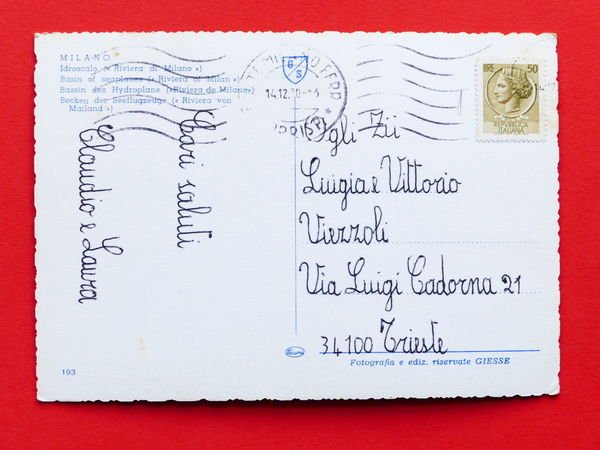 MILANO
Idroscalo (« Riviera di Milano »)
Basin of seaplanes (« Riviera of Milan »)
Bassin des Hydroplane (« Riviera de Milano »)
Becken der Seeflugzeuge (« Riviera von
Mailand »)
Cari saluti
Claudio e Laura
193
G S
14.12.70
50
REPUBBLICA
ITALIANA
Agli Zii
Luigia e Vittorio
Viezzoli
Via Luigi Cadorna 21
34100 Trieste
Fotografia e ediz. riservate GIESSE